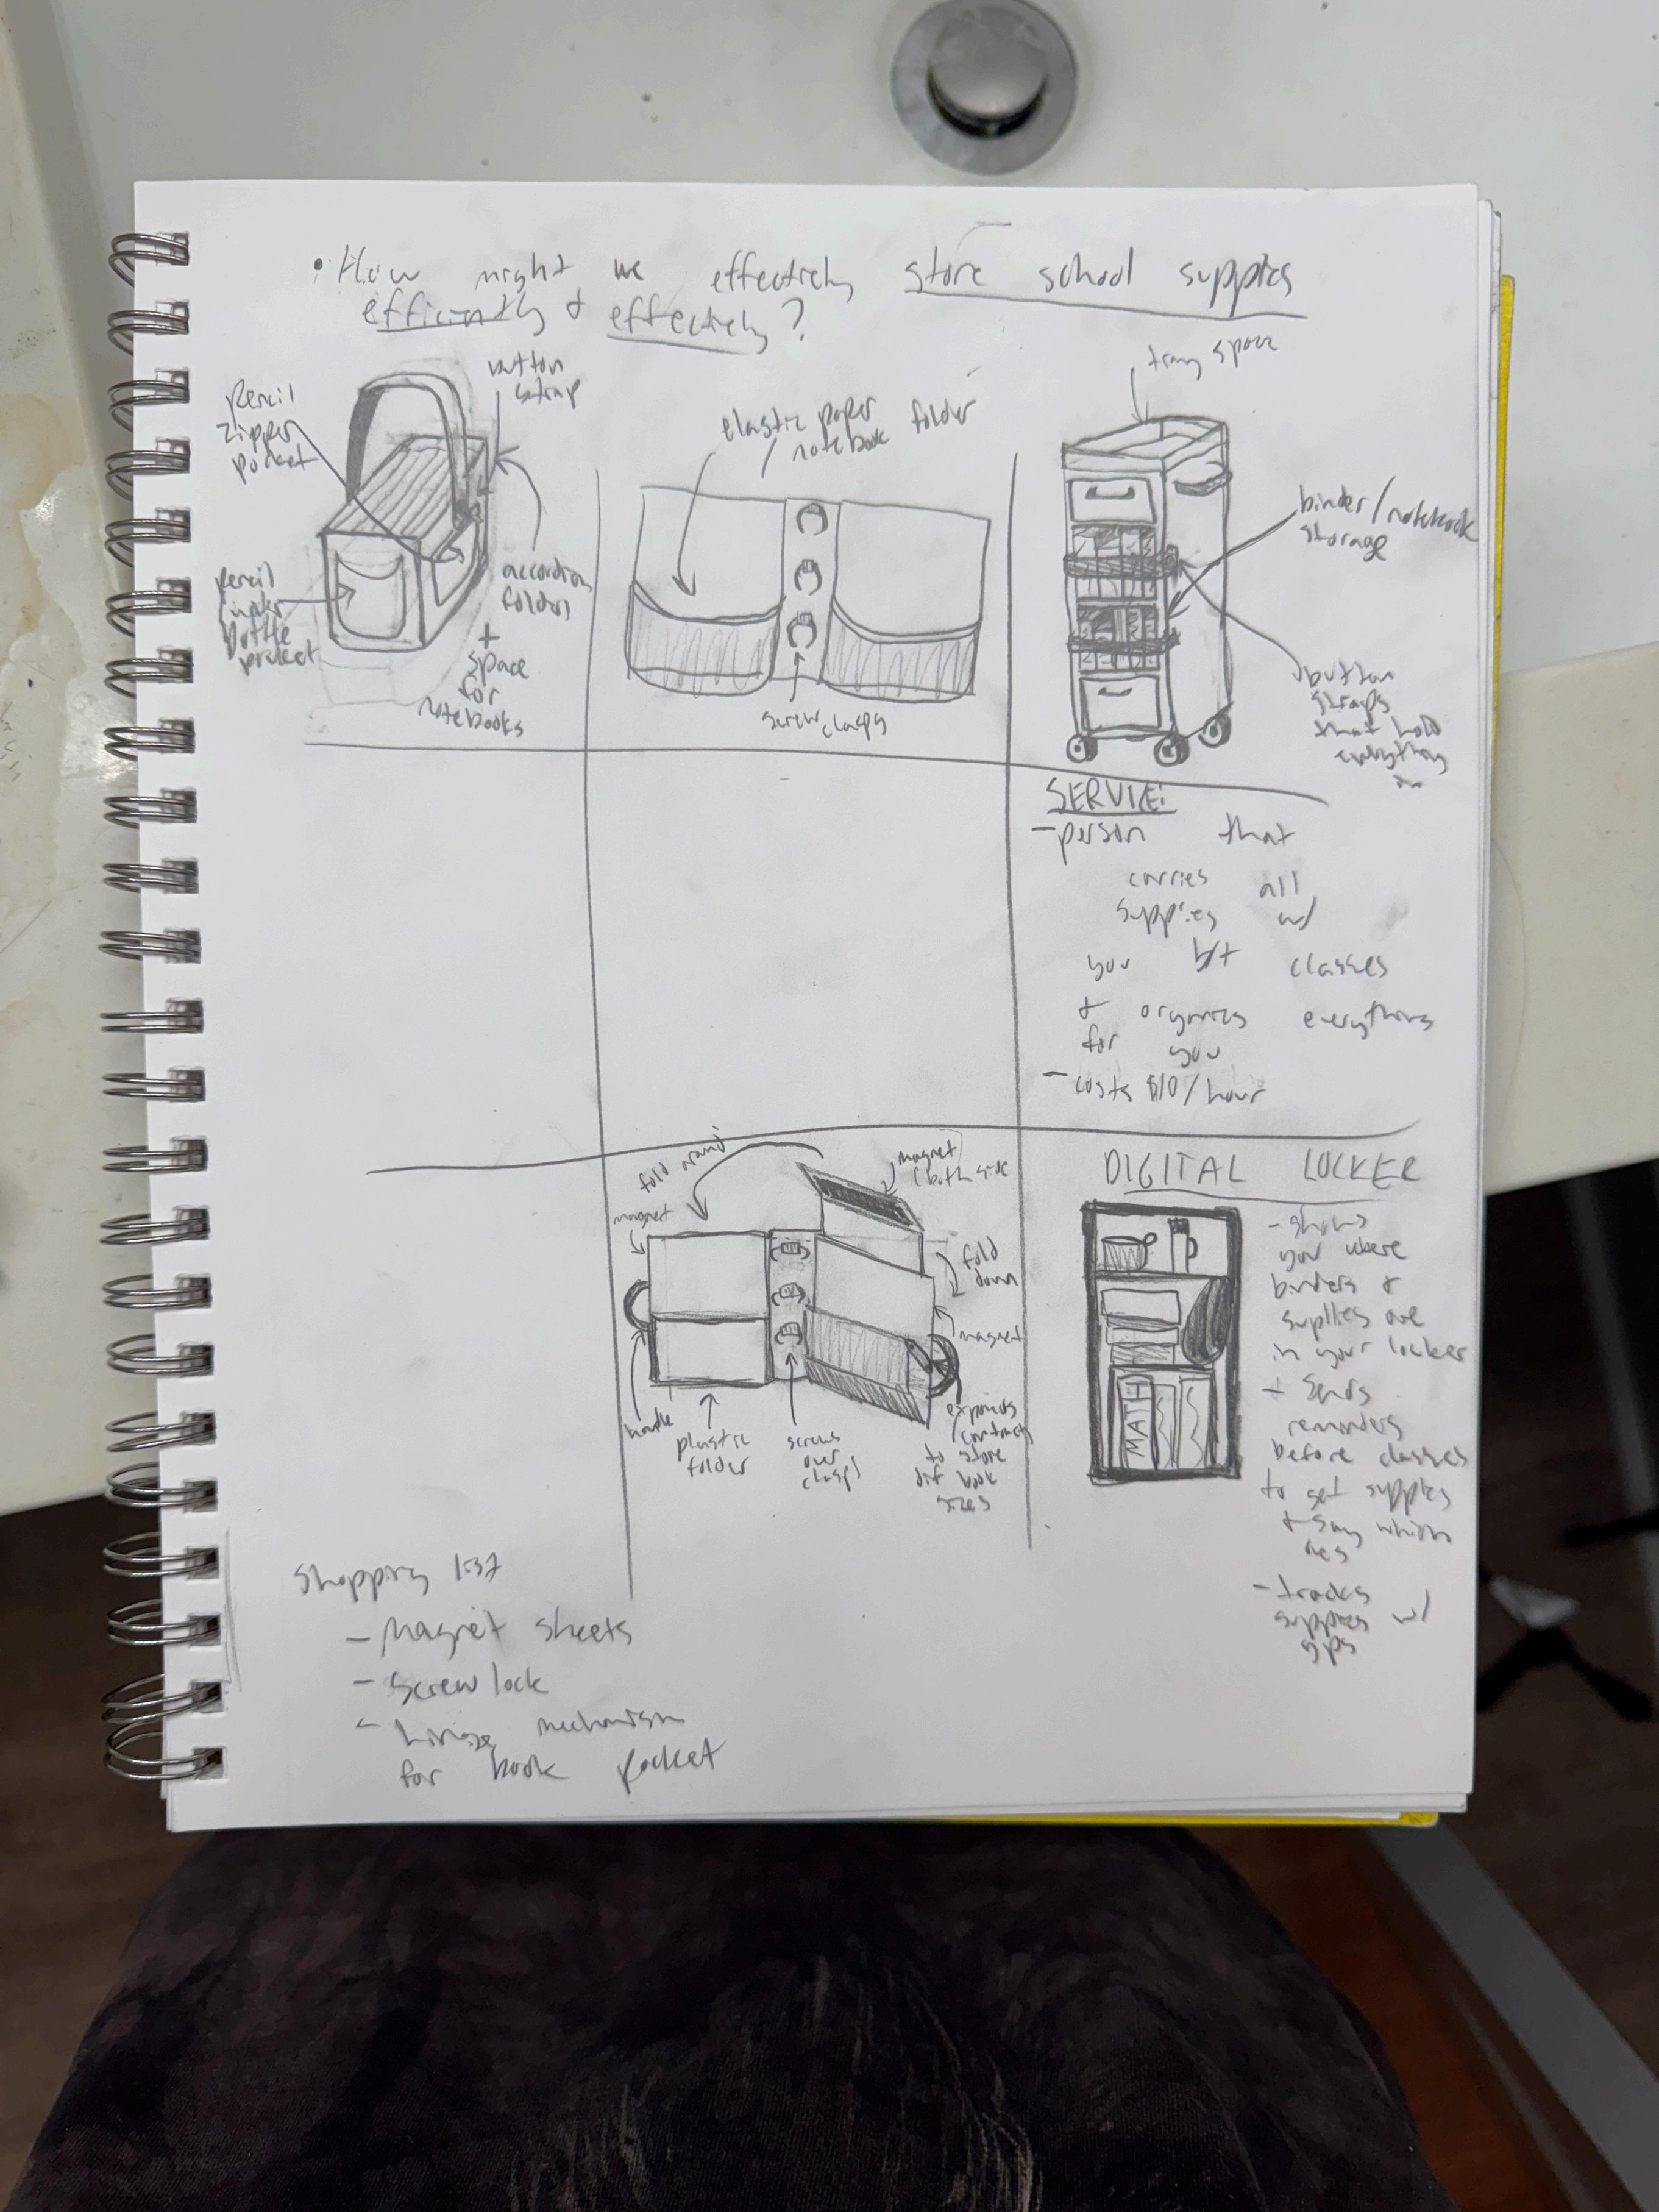 • How might we effectively store school supplies
efficiently & effectively?
pencil
zipper
pocket
button
strap
pencil
bottle
pocket
accordion
folders
+
space
for
notebooks
elastic paper
/ notebook folder
screw clasps
tray space
binder/notebook
storage
button
straps
that hold
everything
in
SERVICE:
- person that
carries all
supplies w/
you b/t classes
& organizes everything
for you
- costs $10/hour
fold around
magnet
(both side
magnet
fold
down
magnet
handle
plastic
folder
screws
over
clasps
expands/
contracts
to store
dif book
sizes
DIGITAL LOCKER
- shows
you where
binders &
supplies are
in your locker
+ sends
reminders
before classes
to get supplies
& say which
ones
- tracks
supplies w/
gps
Shopping list
- Magnet sheets
- Screw lock
- hinge mechanism
for book pocket
MATH